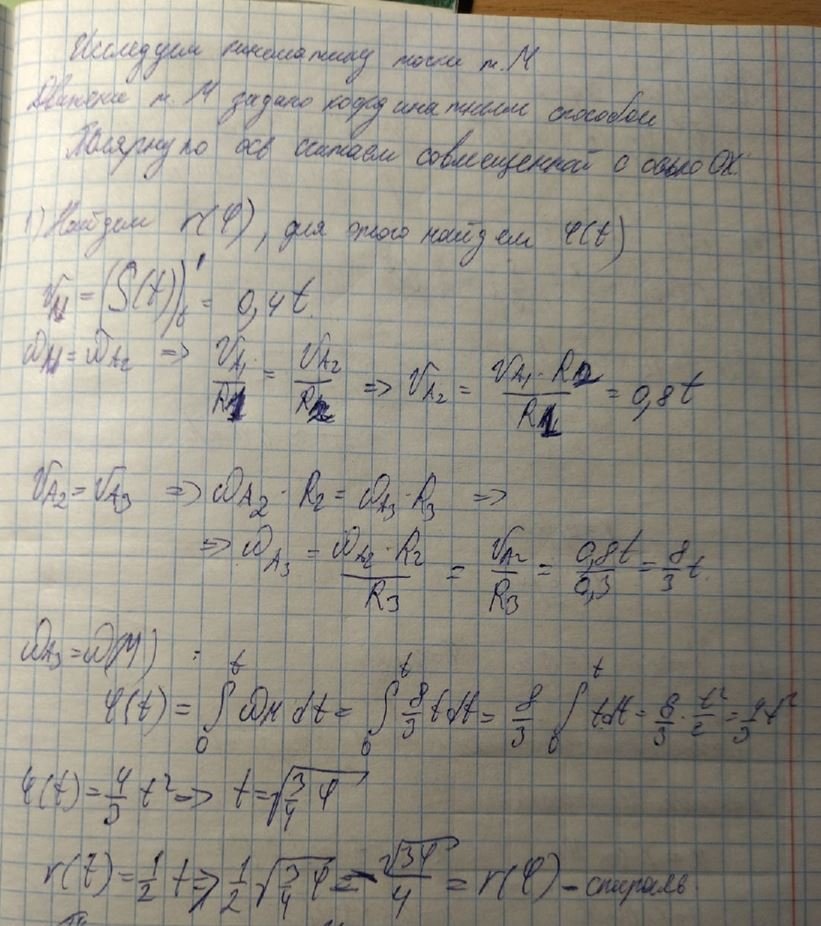 Исследуем кинематику точки т. М
Движение т. М задано координатным способом
Полярную ось считаем совмещенной с осью OX.
1) Найдем r(φ), для этого найдем φ(t)
V = (S(t))'t = 0,4t.
ω = ωA2 => VA1/R1 = VA2/R2 => VA2 = VA1·R2/R1 = 0,8t
VA2 = VA3 => ωA2·R2 = ωA3·R3 =>
=> ωA3 = ωA2·R2/R3 = VA2/R3 = 0,8t/0,3 = 8/3 t.
ωA3 = ω(М) :
φ(t) = ∫₀ᵗ ωм dt = ∫₀ᵗ 8/3 t dt = 8/3 ∫₀ᵗ t dt = 8/3 · t²/2 = 4/3 t²
φ(t) = 4/3 t² => t = √(3/4 φ)
r(t) = 1/2 t => 1/2 √(3/4 φ) = √(3φ)/4 = r(φ) – спираль.